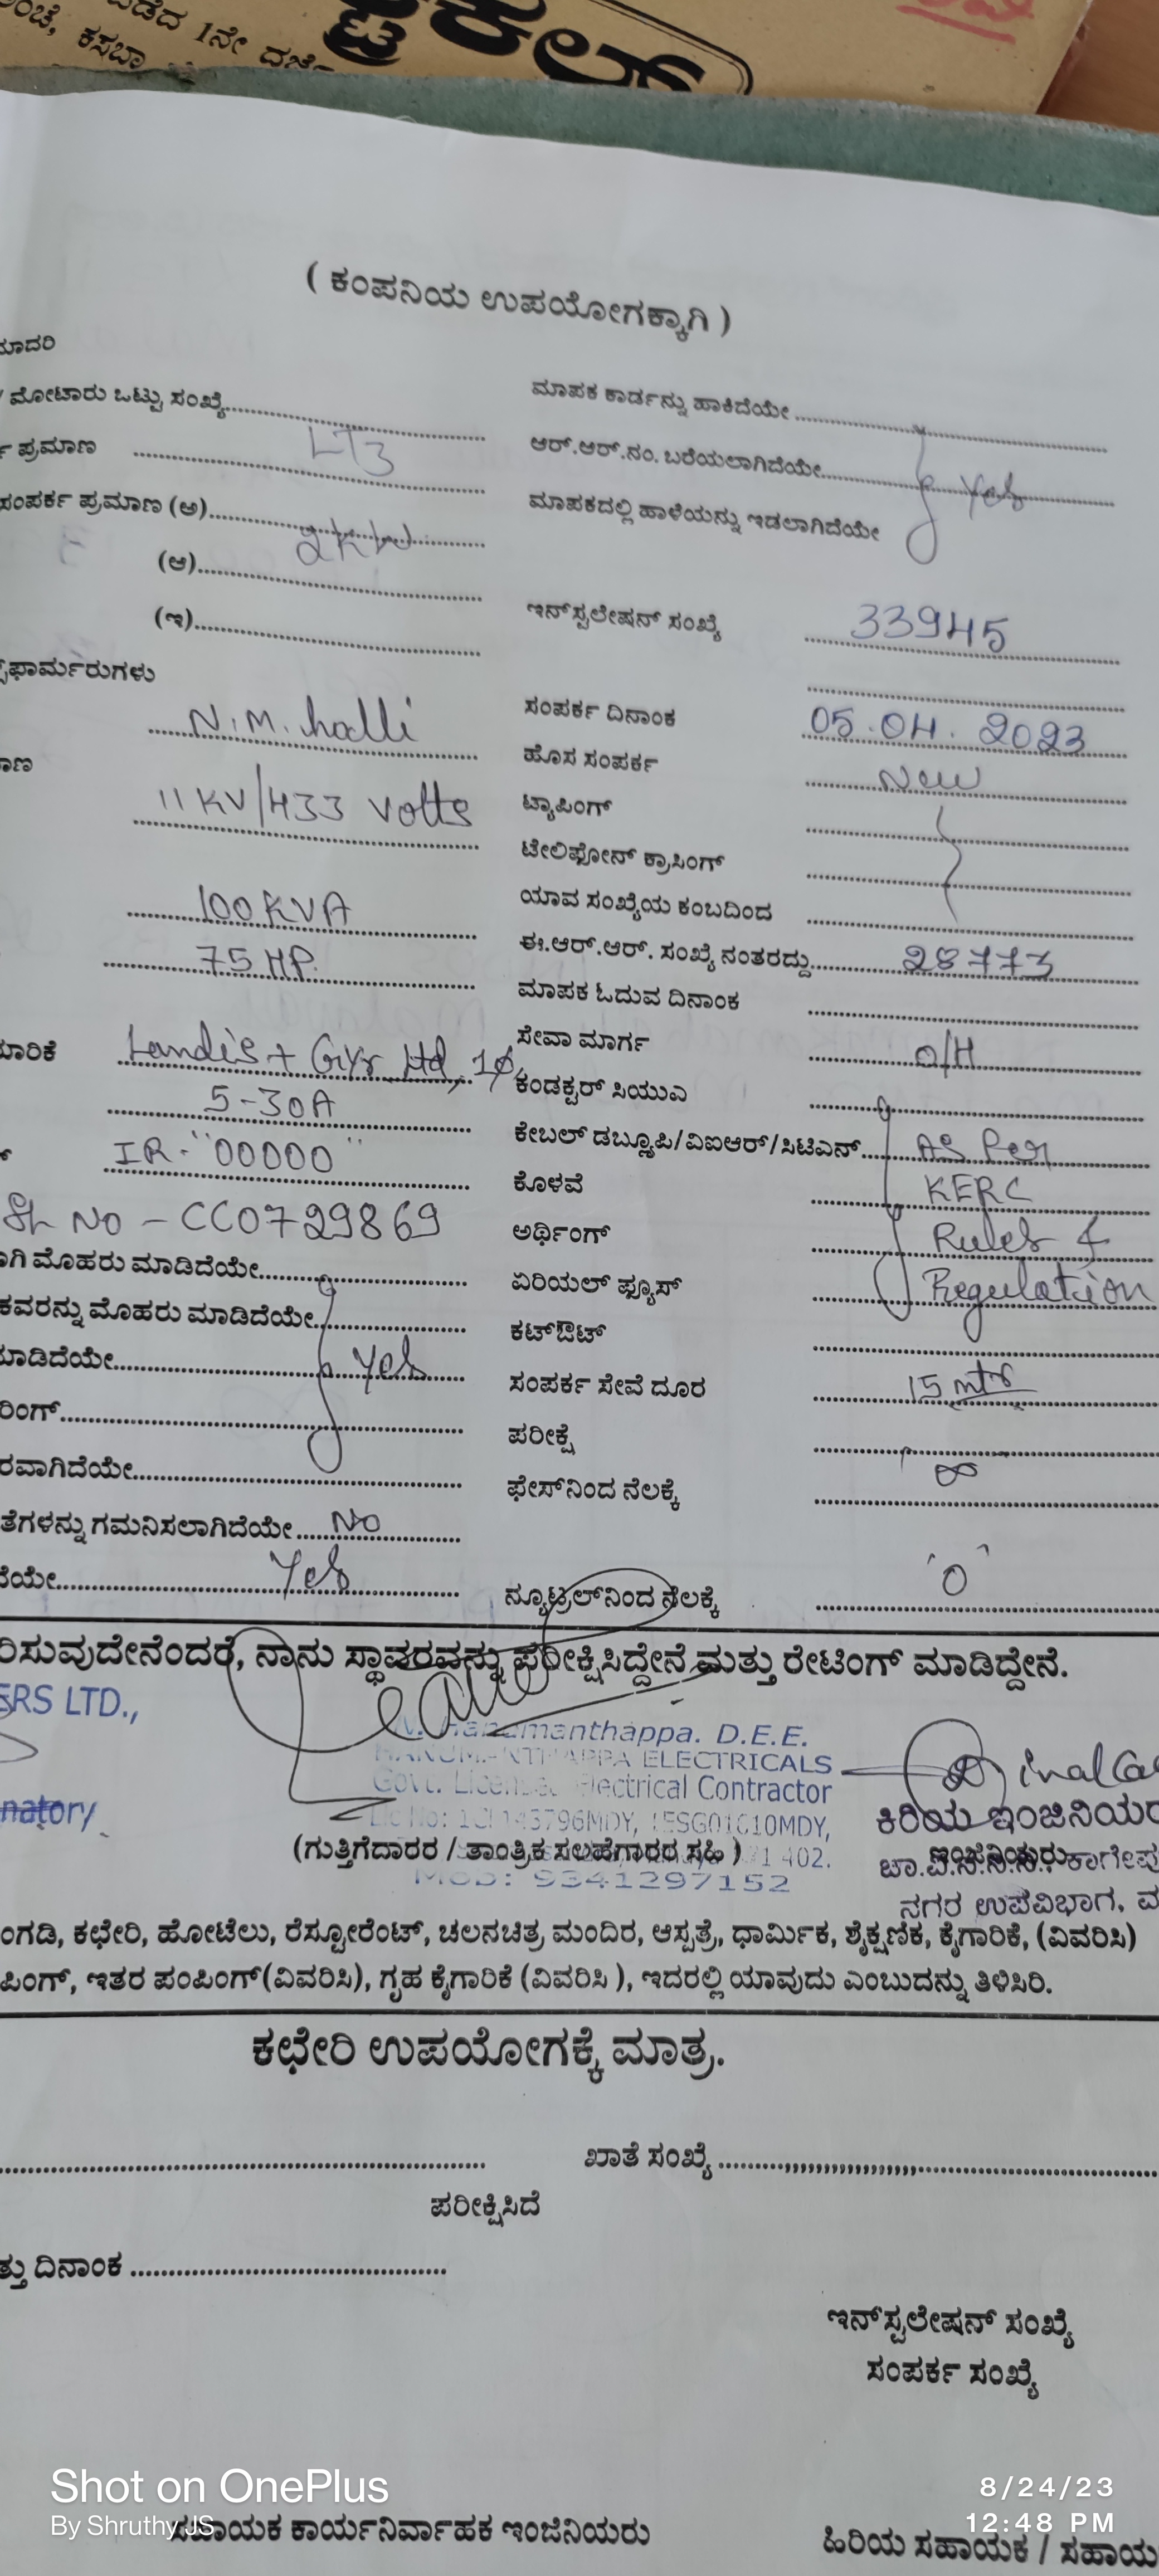 ಕಸಬಾ
1ನೇ ದರ್ಜೆ
( ಕಂಪನಿಯ ಉಪಯೋಗಕ್ಕಾಗಿ )
ಮಾದರಿ
/ ಮೋಟಾರು ಒಟ್ಟು ಸಂಖ್ಯೆ
ಮಾಪಕ ಕಾರ್ಡನ್ನು ಹಾಕಿದೆಯೇ
ಪ್ರಮಾಣ LT3
ಆರ್.ಆರ್.ನಂ. ಬರೆಯಲಾಗಿದೆಯೇ Yes
ಸಂಪರ್ಕ ಪ್ರಮಾಣ (ಅ) 2KW
ಮಾಪಕದಲ್ಲಿ ಹಾಳೆಯನ್ನು ಇಡಲಾಗಿದೆಯೇ
(ಆ)
(ಇ)
ಇನ್‌ಸ್ಟಲೇಷನ್ ಸಂಖ್ಯೆ 33945
ಫಾರ್ಮರುಗಳು
N.M.halli
ಸಂಪರ್ಕ ದಿನಾಂಕ 05.04.2023
ಹೊಸ ಸಂಪರ್ಕ New
11 KV/433 Volts
ಟ್ಯಾಪಿಂಗ್
ಟೇಲಿಫೋನ್ ಕ್ರಾಸಿಂಗ್
100 KVA
ಯಾವ ಸಂಖ್ಯೆಯ ಕಂಬದಿಂದ
75 HP.
ಈ.ಆರ್.ಆರ್. ಸಂಖ್ಯೆ ನಂತರದ್ದು 28773
ಮಾಪಕ ಓದುವ ದಿನಾಂಕ
Landis + Gyr Ltd, 1ø,
ಸೇವಾ ಮಾರ್ಗ O/H
5-30A
ಕಂಡಕ್ಟರ್ ಸಿಯುಎ
IR - "00000"
ಕೇಬಲ್ ಡಬ್ಲ್ಯೂಪಿ/ವಿಐಆರ್/ಸಿಟಿಎನ್ As Per
ಕೊಳವೆ KERC
Sl No - CC0729869
ಅರ್ಥಿಂಗ್ Rules &
ಮೊಹರು ಮಾಡಿದೆಯೇ
ಏರಿಯಲ್ ಫ್ಯೂಸ್ Regulation
ಕವರನ್ನು ಮೊಹರು ಮಾಡಿದೆಯೇ
ಕಟ್‌ಔಟ್
ಮಾಡಿದೆಯೇ Yes
ಸಂಪರ್ಕ ಸೇವೆ ದೂರ 15 mtr
ರಿಂಗ್
ಪರೀಕ್ಷೆ
ರವಾಗಿದೆಯೇ
ಫೇಸ್‌ನಿಂದ ನೆಲಕ್ಕೆ ∞
ತೆಗಳನ್ನು ಗಮನಿಸಲಾಗಿದೆಯೇ No
Yes
ನ್ಯೂಟ್ರಲ್‌ನಿಂದ ನೆಲಕ್ಕೆ 'O'
ರಿಸುವುದೇನೆಂದರೆ, ನಾನು ಸ್ಥಾವರವನ್ನು ಪರೀಕ್ಷಿಸಿದ್ದೇನೆ ಮತ್ತು ರೇಟಿಂಗ್ ಮಾಡಿದ್ದೇನೆ.
ERS LTD.,
Hanumanthappa. D.E.E.
HANUMANTHAPPA ELECTRICALS
Govt. Licensed Electrical Contractor
natory
ಕಿರಿಯ ಇಂಜಿನಿಯರ
(ಗುತ್ತಿಗೆದಾರರ / ತಾಂತ್ರಿಕ ಸಲಹೆಗಾರರ ಸಹಿ )
ಇಂಜಿನಿಯರು
Mob: 9341297152
ನಗರ ಉಪವಿಭಾಗ,
ಂಗಡಿ, ಕಛೇರಿ, ಹೋಟೆಲು, ರೆಸ್ಟೋರೆಂಟ್, ಚಲನಚಿತ್ರ ಮಂದಿರ, ಆಸ್ಪತ್ರೆ, ಧಾರ್ಮಿಕ, ಶೈಕ್ಷಣಿಕ, ಕೈಗಾರಿಕೆ, (ವಿವರಿಸಿ)
ಪಿಂಗ್, ಇತರ ಪಂಪಿಂಗ್(ವಿವರಿಸಿ), ಗೃಹ ಕೈಗಾರಿಕೆ (ವಿವರಿಸಿ ), ಇದರಲ್ಲಿ ಯಾವುದು ಎಂಬುದನ್ನು ತಿಳಿಸಿರಿ.
ಕಛೇರಿ ಉಪಯೋಗಕ್ಕೆ ಮಾತ್ರ.
ಖಾತೆ ಸಂಖ್ಯೆ
ಪರೀಕ್ಷಿಸಿದೆ
ತ್ತು ದಿನಾಂಕ
ಇನ್‌ಸ್ಟಲೇಷನ್ ಸಂಖ್ಯೆ
ಸಂಪರ್ಕ ಸಂಖ್ಯೆ
Shot on OnePlus
By Shruthy JS
8/24/23
12:48 PM
ಸಹಾಯಕ ಕಾರ್ಯನಿರ್ವಾಹಕ ಇಂಜಿನಿಯರು
ಹಿರಿಯ ಸಹಾಯಕ / ಸಹಾಯ